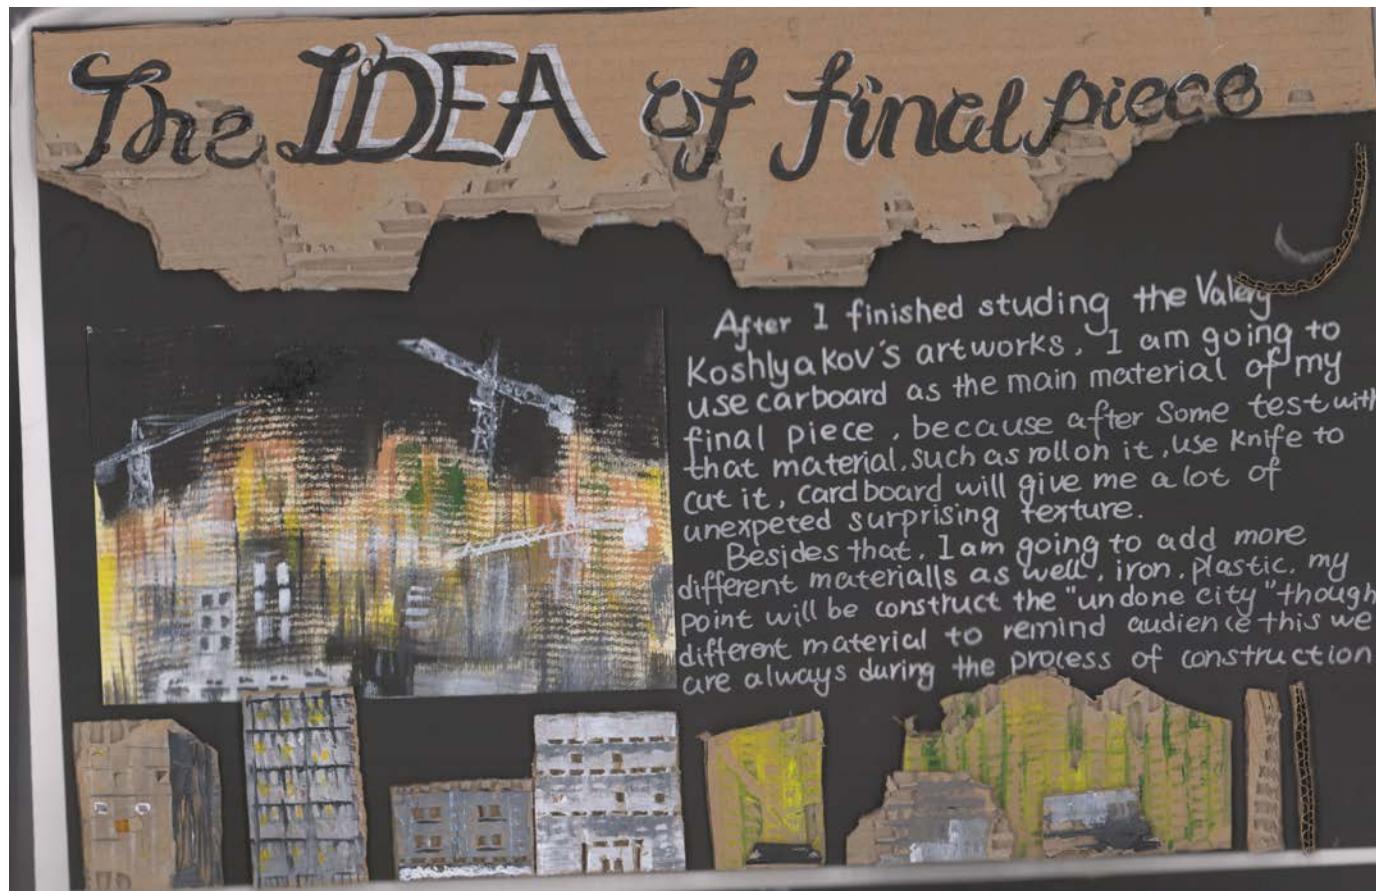 The IDEA of final piece
After I finished studing the Valery
Koshlyakov's artworks, I am going to
use carboard as the main material of my
final piece, because after some test with
that material, such as roll on it, use knife to
cut it, cardboard will give me a lot of
unexpeted surprising texture.
Besides that, I am going to add more
different materialls as well, iron, plastic, my
point will be construct the "undone city" though
different material to remind audience this we
are always during the process of construction